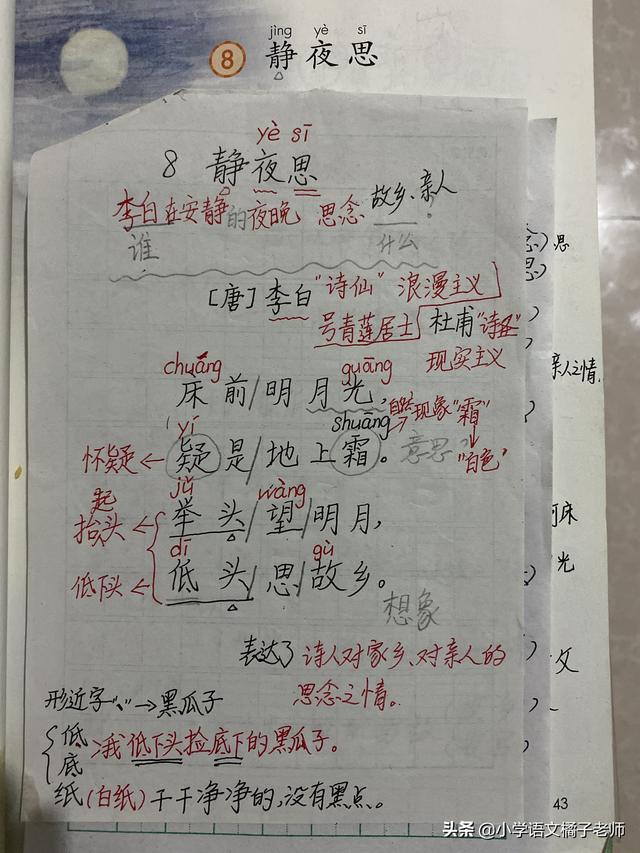 jìng yè sī
8 静夜思
yè sī
8 静夜思
李白在安静的夜晚 思念 故乡、亲人。
谁 什么
[唐]李白"诗仙" 浪漫主义
号青莲居士 杜甫"诗圣"
现实主义
chuáng guāng
床前/明月光,
yí shuāng 自然现象"霜"
怀疑←疑是/地上霜。意思? "白色"
jǔ wàng
抬起头←举头/望明月,
dī gù
低下头←低头/思/故乡。
想象
表达了诗人对家乡、对亲人的
思念之情。
形近字"、"→黑瓜子
低
底
我低下头捡底下的黑瓜子。
纸(白纸)干干净净的,没有黑点。
思
亲人之情.
床
光
43
头条 @小学语文橘子老师